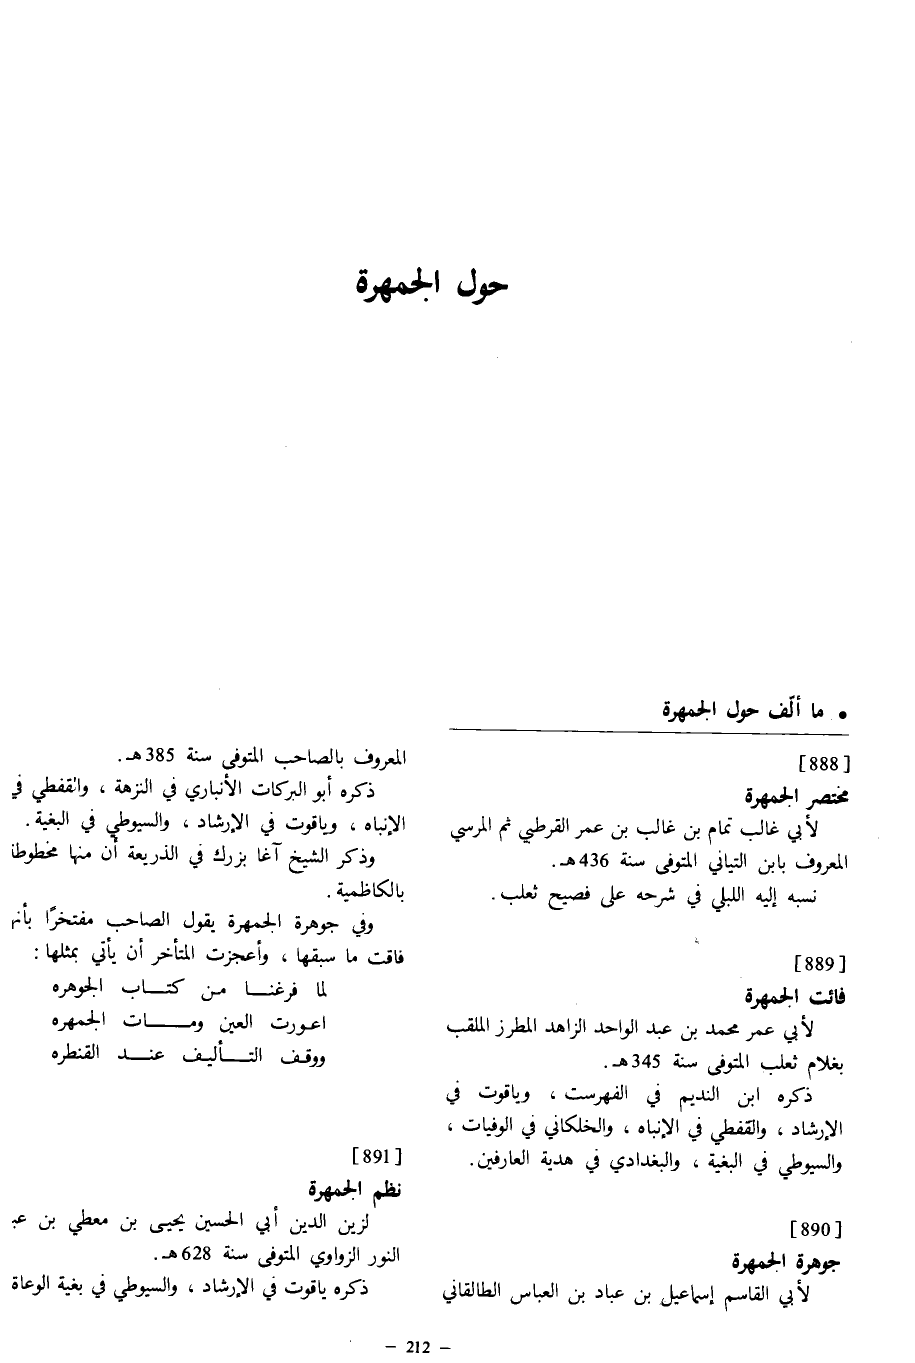 حول الجمهرة
• ما ألّف حول الجمهرة
[888]
مختصر الجمهرة
لأبي غالب تمام بن غالب بن عمر القرطبي ثم المرسي
المعروف بابن التياني المتوفى سنة 436هـ.
نسبه إليه اللبلي في شرحه على فصيح ثعلب.
[889]
فائت الجمهرة
لأبي عمر محمد بن عبد الواحد الزاهد المطرز الملقب
بغلام ثعلب المتوفى سنة 345هـ.
ذكره ابن النديم في الفهرست ، وياقوت في
الإرشاد ، والقفطي في الإنباه ، والخلكاني في الوفيات ،
والسيوطي في البغية ، والبغدادي في هدية العارفين.
[890]
جوهرة الجمهرة
لأبي القاسم إسماعيل بن عباد بن العباس الطالقاني
المعروف بالصاحب المتوفى سنة 385هـ.
ذكره أبو البركات الأنباري في النزهة ، والقفطي في
الإنباه ، وياقوت في الإرشاد ، والسيوطي في البغية .
وذكر الشيخ آغا بزرك في الذريعة أن منها مخطوطا
بالكاظمية .
وفي جوهرة الجمهرة يقول الصاحب مفتخرًا بأنها
فاقت ما سبقها ، وأعجزت المتأخر أن يأتي بمثلها :
لما فرغنا من كتاب الجوهره
اعورت العين ومات الجمهره
ووقف التأليف عند القنطره
[891]
نظم الجمهرة
لزين الدين أبي الحسين يحيى بن معطي بن عبد
النور الزواوي المتوفى سنة 628هـ.
ذكره ياقوت في الإرشاد ، والسيوطي في بغية الوعاة
– 212 –